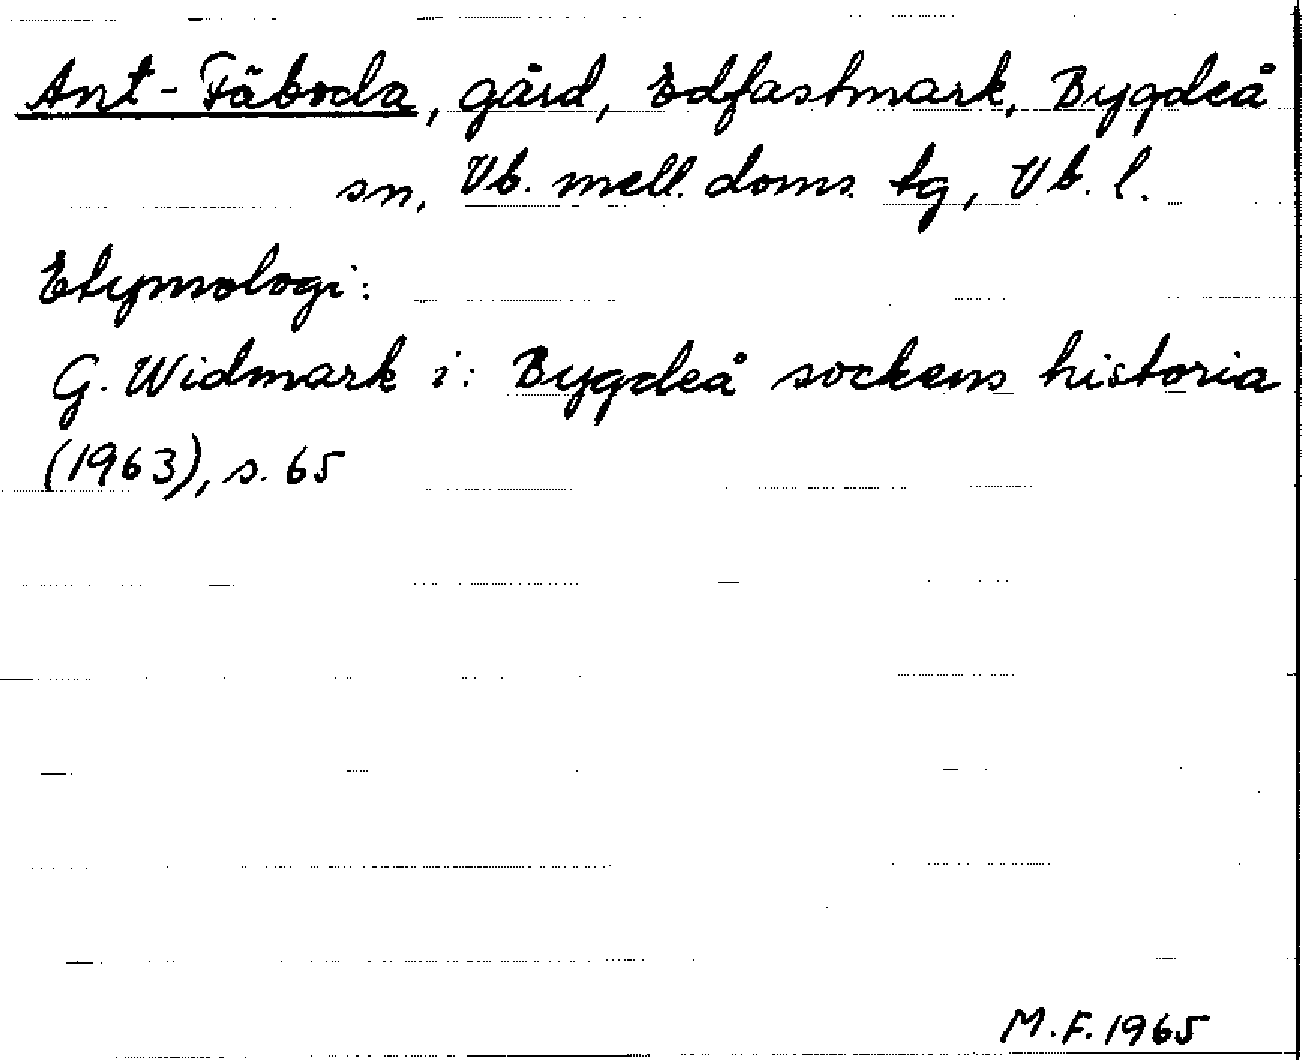 Ant-Fäboda, gård, Edfastmark, Bygdeå
sn, Vb. mell. doms. tg, Vb. l.
Etymologi:
G. Widmark i: Bygdeå sockens historia
(1963), s. 65
M.F. 1965